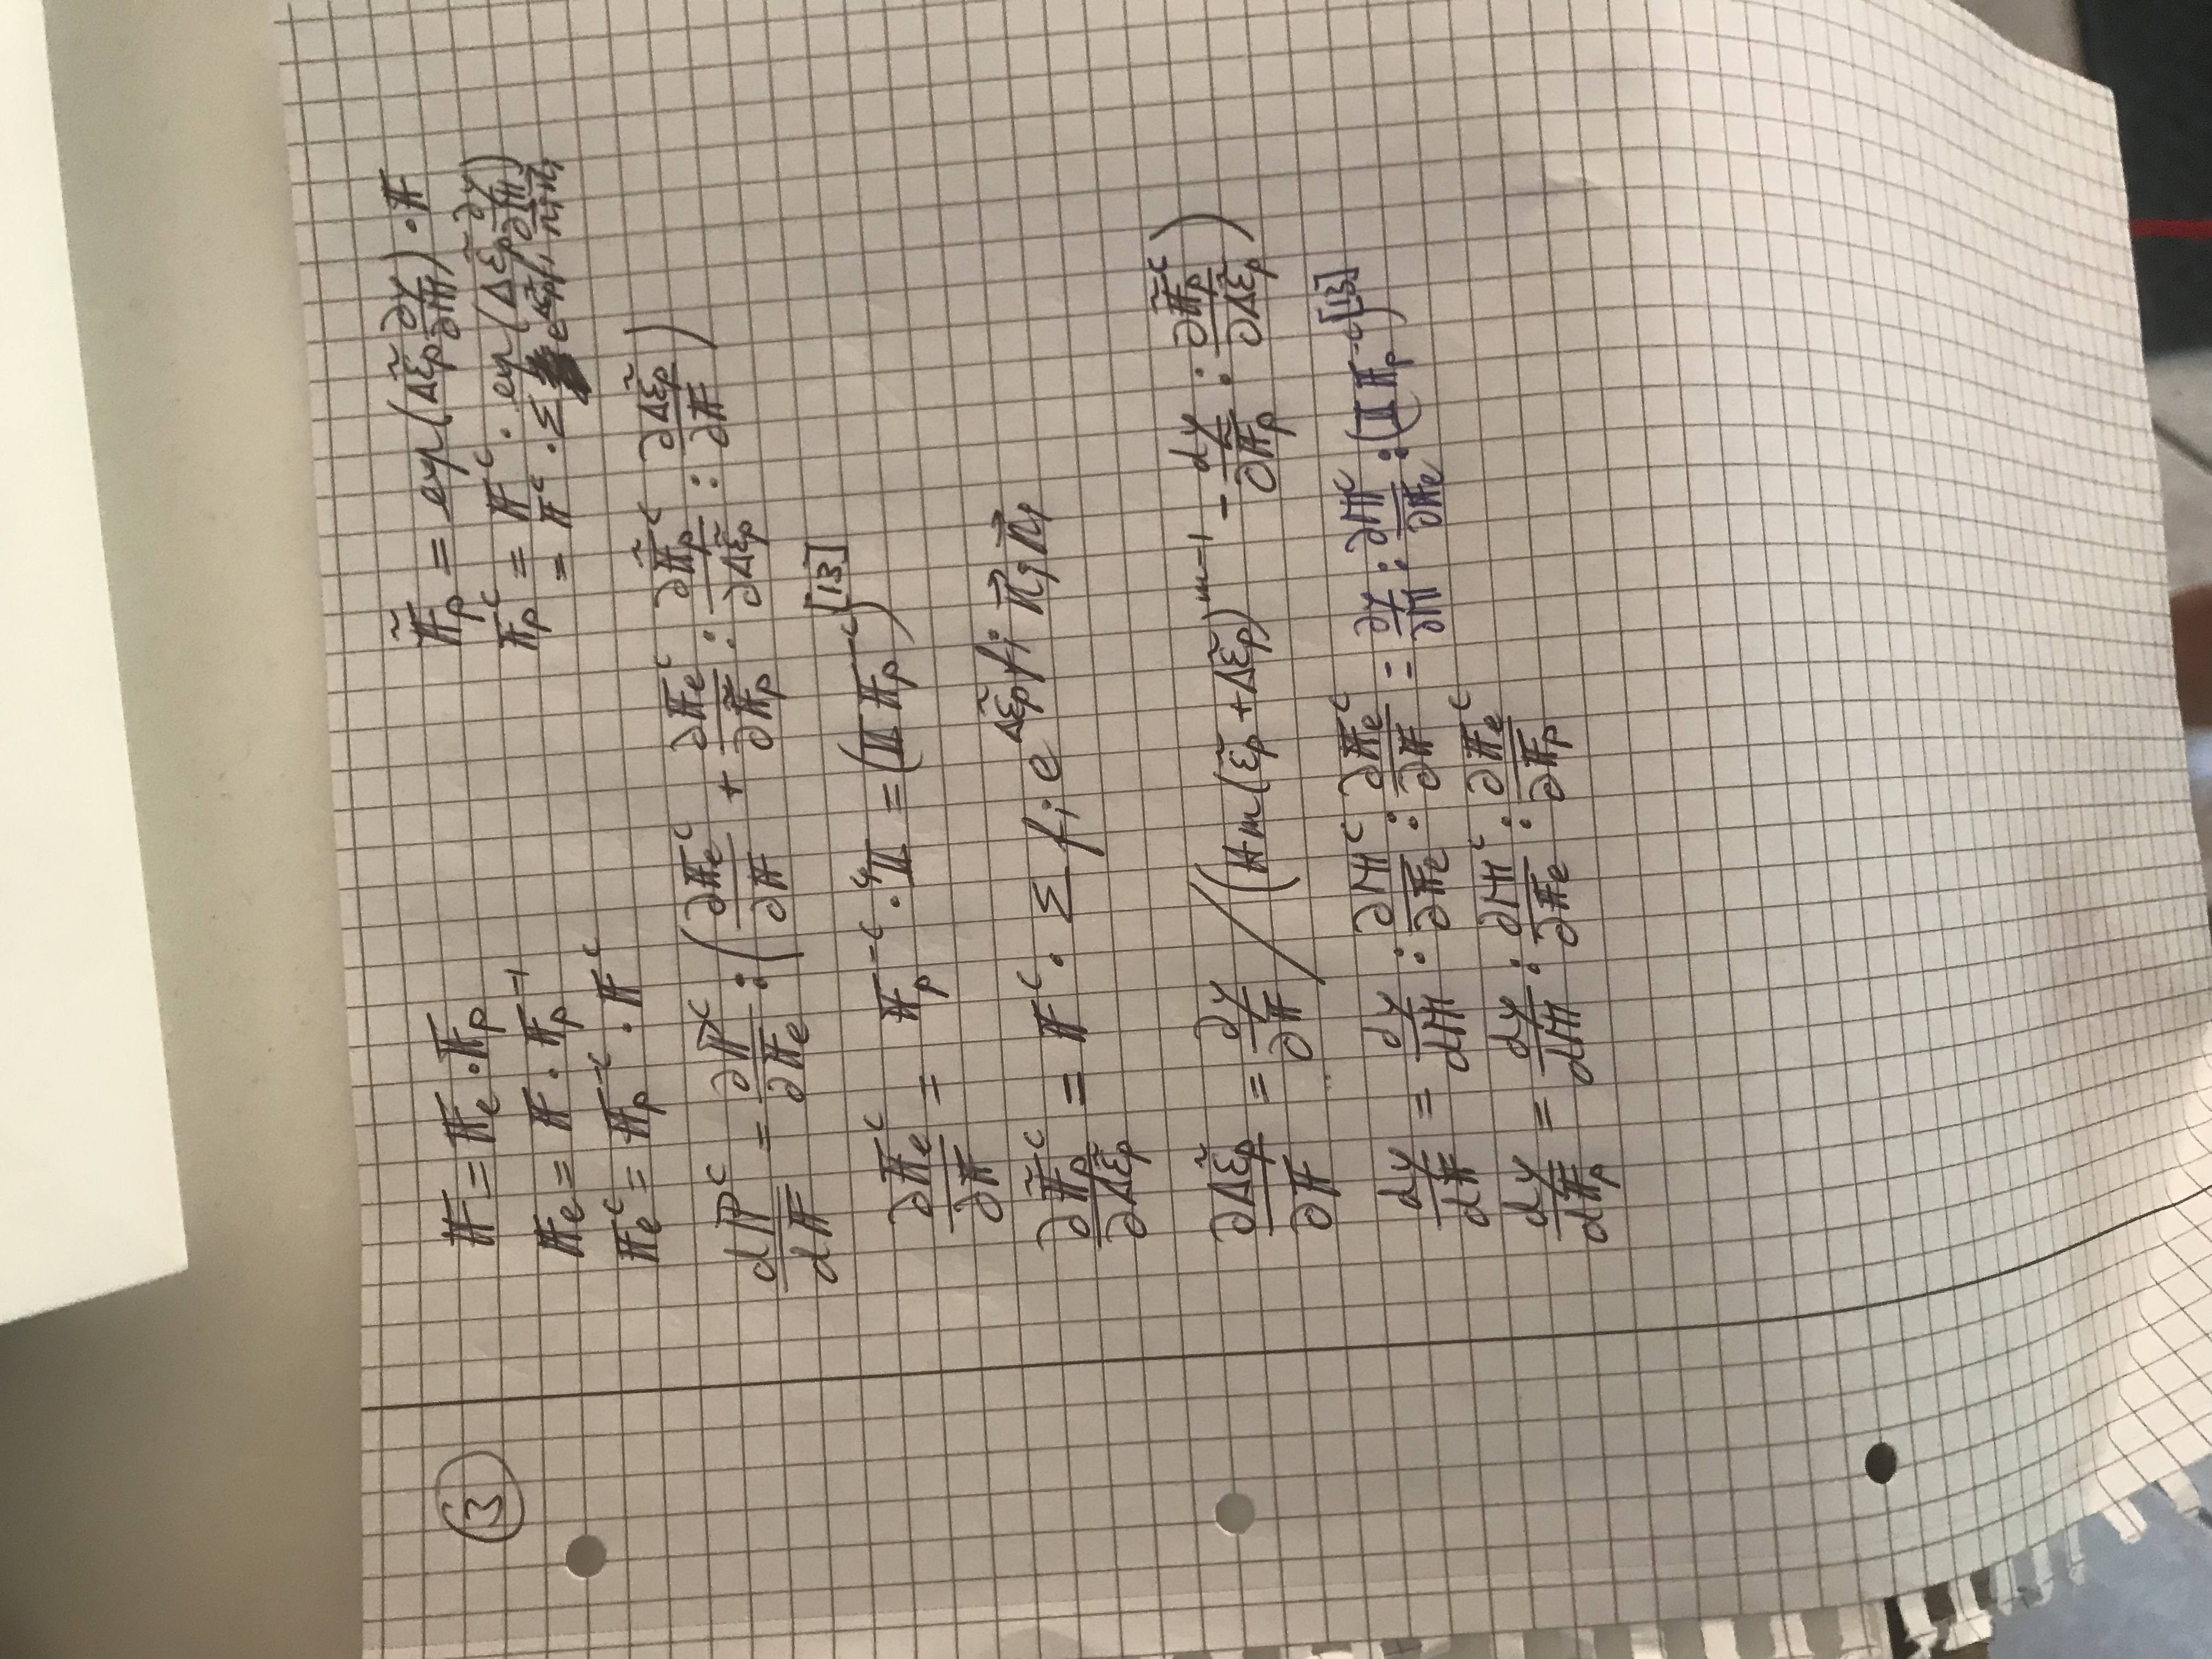 ③
𝔽 = 𝔽_e · 𝔽_p
𝔽_e = 𝔽 · 𝔽_p^{-1}
𝔽_e^c = 𝔽_p^{-c} · 𝔽^c
𝔽̃_p = exp(Δε̃_p ∂y/∂ℍ) · 𝔽
𝔽_p^c = 𝔽^c · exp(Δε̃_p ∂y/∂ℍ)
= 𝔽^c · Σ e^{Δε̃_p f_i} n⃗_i n⃗_i
dℙ^c/d𝔽 = ∂ℙ^c/∂𝔽_e : (∂𝔽_e^c/∂𝔽 + ∂𝔽_e^c/∂𝔽̃_p : ∂𝔽̃_p^c/∂Δε̃_p : ∂Δε̃_p/∂𝔽)
∂𝔽_e^c/∂𝔽 = 𝔽_p^{-c} · ⁴𝕀 = (𝕀 𝔽_p^{-c})^{[13]}
∂𝔽̃_p^c/∂Δε̃_p = 𝔽^c · Σ f_i e^{Δε̃_p f_i} n⃗_i n⃗_i
∂Δε̃_p/∂𝔽 = ∂y/∂𝔽 / (Hm(ε̃_p + Δε̃_p)^{m-1} - dy/∂𝔽̃_p : ∂𝔽̃_p^c/∂Δε̃_p)
dy/d𝔽 = dy/dℍ : ∂ℍ^c/∂𝔽_e : ∂𝔽_e^c/∂𝔽 = ∂y/∂ℍ : ∂ℍ^c/∂𝔽_e : (𝕀 𝔽_p^{-c})^{[13]}
dy/d𝔽_p = dy/dℍ : ∂ℍ^c/∂𝔽_e : ∂𝔽_e^c/∂𝔽_p